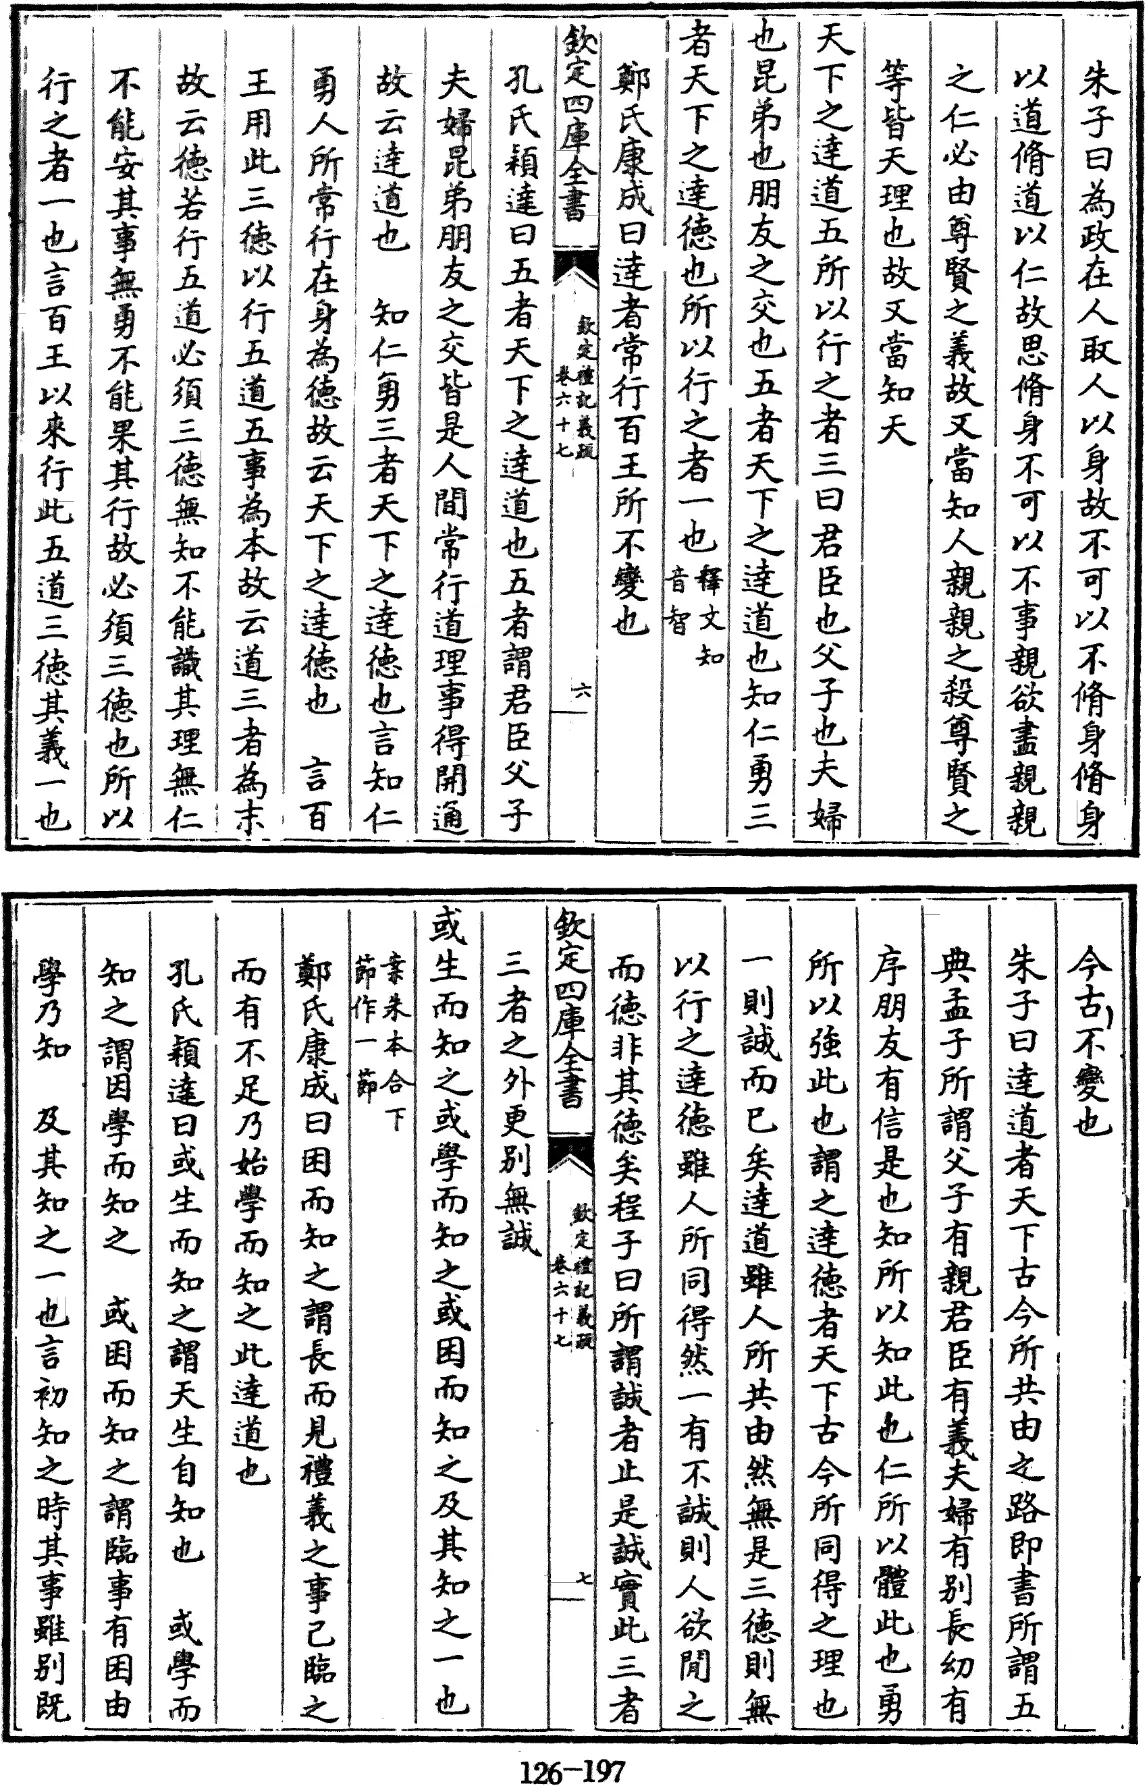 朱子曰為政在人取人以身故不可以不脩身脩身
以道脩道以仁故思脩身不可以不事親欲盡親親
之仁必由尊賢之義故又當知人親親之殺尊賢之
等皆天理也故又當知天
天下之達道五所以行之者三曰君臣也父子也夫婦
也昆弟也朋友之交也五者天下之達道也知仁勇三
者天下之達德也所以行之者一也釋文知音智
鄭氏康成曰達者常行百王所不變也
欽定四庫全書
欽定禮記義疏
卷六十七
六
孔氏穎達曰五者天下之達道也五者謂君臣父子
夫婦昆弟朋友之交皆是人間常行道理事得開通
故云達道也　知仁勇三者天下之達德也言知仁
勇人所常行在身為德故云天下之達德也　言百
王用此三德以行五道五事為本故云道三者為末
故云德若行五道必須三德無知不能識其理無仁
不能安其事無勇不能果其行故必須三德也所以
行之者一也言百王以來行此五道三德其義一也
今古不變也
朱子曰達道者天下古今所共由之路即書所謂五
典孟子所謂父子有親君臣有義夫婦有別長幼有
序朋友有信是也知所以知此也仁所以體此也勇
所以強此也謂之達德者天下古今所同得之理也
一則誠而已矣達道雖人所共由然無是三德則無
以行之達德雖人所同得然一有不誠則人欲間之
而德非其德矣程子曰所謂誠者止是誠實此三者
欽定四庫全書
欽定禮記義疏
卷六十七
七
三者之外更別無誠
或生而知之或學而知之或困而知之及其知之一也
案朱本合下
節作一節
鄭氏康成曰困而知之謂長而見禮義之事己臨之
而有不足乃始學而知之此達道也
孔氏穎達曰或生而知之謂天生自知也　或學而
知之謂因學而知之　或困而知之謂臨事有困由
學乃知　及其知之一也言初知之時其事雖別既
126-197